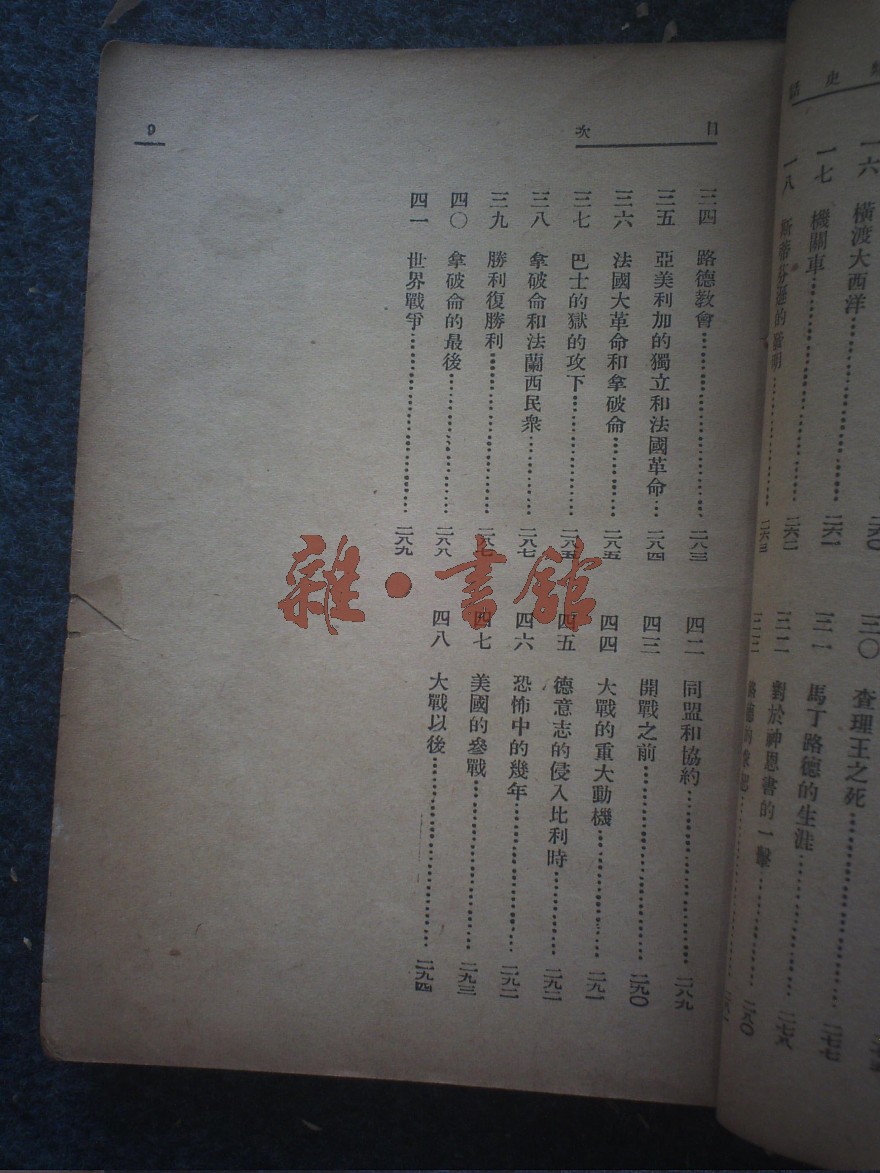 史話
一六 橫渡大西洋
一七 機關車 二六一
一八 斯蒂芬遜的發明
三〇 查理王之死
三一 馬丁路德的生涯 二七七
三二 對於神恩書的一擊
目次
9
三四 路德教會 二八三
三五 亞美利加的獨立和法國革命 二八四
三六 法國大革命和拿破侖 二八五
三七 巴士的獄的攻下 二八五
三八 拿破侖和法蘭西民衆 二八七
三九 勝利復勝利 二八七
四〇 拿破侖的最後 二八八
四一 世界戰爭 二八九
四二 同盟和協約 二八九
四三 開戰之前 二九〇
四四 大戰的重大動機 二九一
四五 德意志的侵入比利時 二九二
四六 恐怖中的幾年 二九二
四七 美國的參戰 二九三
四八 大戰以後 二九四
雜·書館